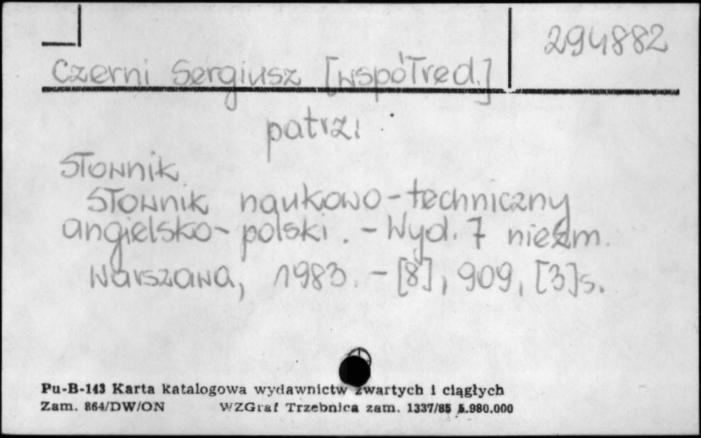 294882
Czerni Sergiusz [współred.]
patrz:
Słownik
Słownik naukowo-techniczny
angielsko-polski. - Wyd. 7 niezm.
Warszawa, 1983. - [8], 909, [3]s.
Pu-B-143 Karta katalogowa wydawnictw zwartych i ciągłych
Zam. 864/DW/ON WZGraf Trzebnica zam. 1337/85 5.980.000